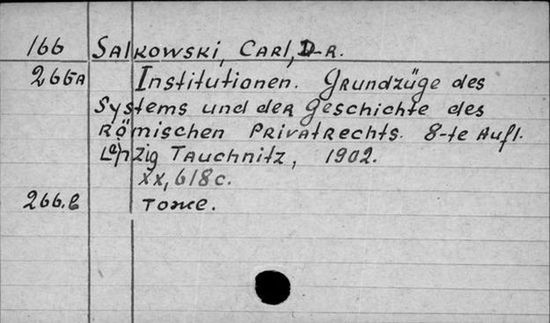 166 Salkowski, Carl, D-r.
266A Institutionen. Grundzüge des
Systems und der Geschichte des
Römischen Privatrechts. 8-te Aufl.
Leipzig Tauchnitz, 1902.
XX, 618 c.
266.b Тоже.